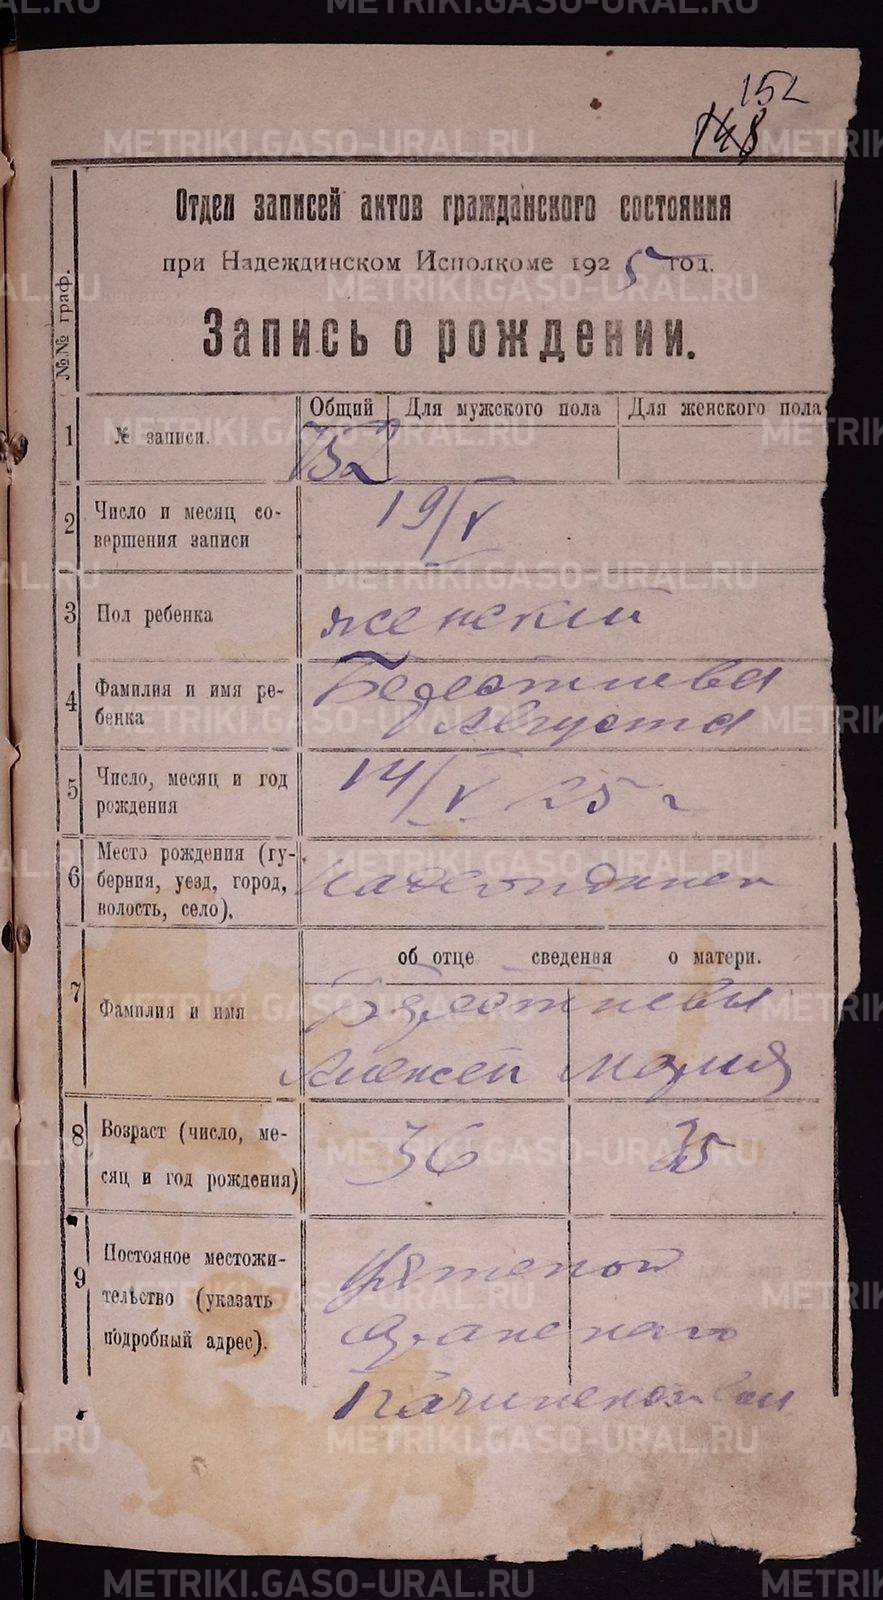 METRIKI.GASO-URAL.RU
152
148
Отдел записей актов гражданского состояния
при Надеждинском Исполкоме 1925 год.
Запись о рождении.
№№ граф.
1
№ записи.
Общий
Для мужского пола
Для женского пола
752
2
Число и месяц со-
вершения записи
19/V
3
Пол ребенка
женский
4
Фамилия и имя ре-
бенка
Августа
5
Число, месяц и год
рождения
14/V 25 г
6
Место рождения (гу-
берния, уезд, город,
волость, село).
7
Фамилия и имя
об отце сведения о матери.
Алексей Мария
8
Возраст (число, ме-
сяц и год рождения)
36
35
9
Постояное местожи-
тельство (указать
подробный адрес).